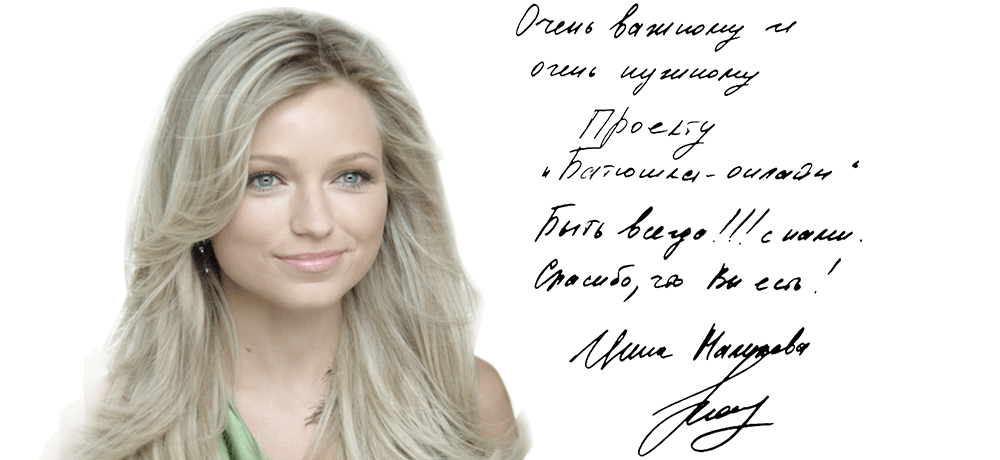 Очень важному и
очень нужному
Проекту
"Батюшка-онлайн"
Быть всегда!!! с нами.
Спасибо, что Вы есть!